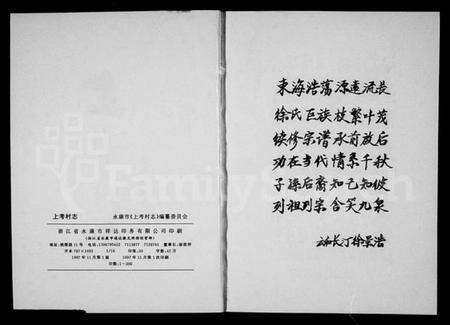 上考村志
永康市《上考村志》编纂委员会
浙江省永康市祥达印务有限公司印刷
开本787×1092 1/16
1997年11月第1版 1997年11月第1次印刷
印数:1—300
東海浩荡源遠流長
徐氏巨族枝繁叶茂
续修宗谱承前啟后
功在当代情系千秋
子孫后裔知己知彼
列祖列宗含笑九泉
FamilySearch